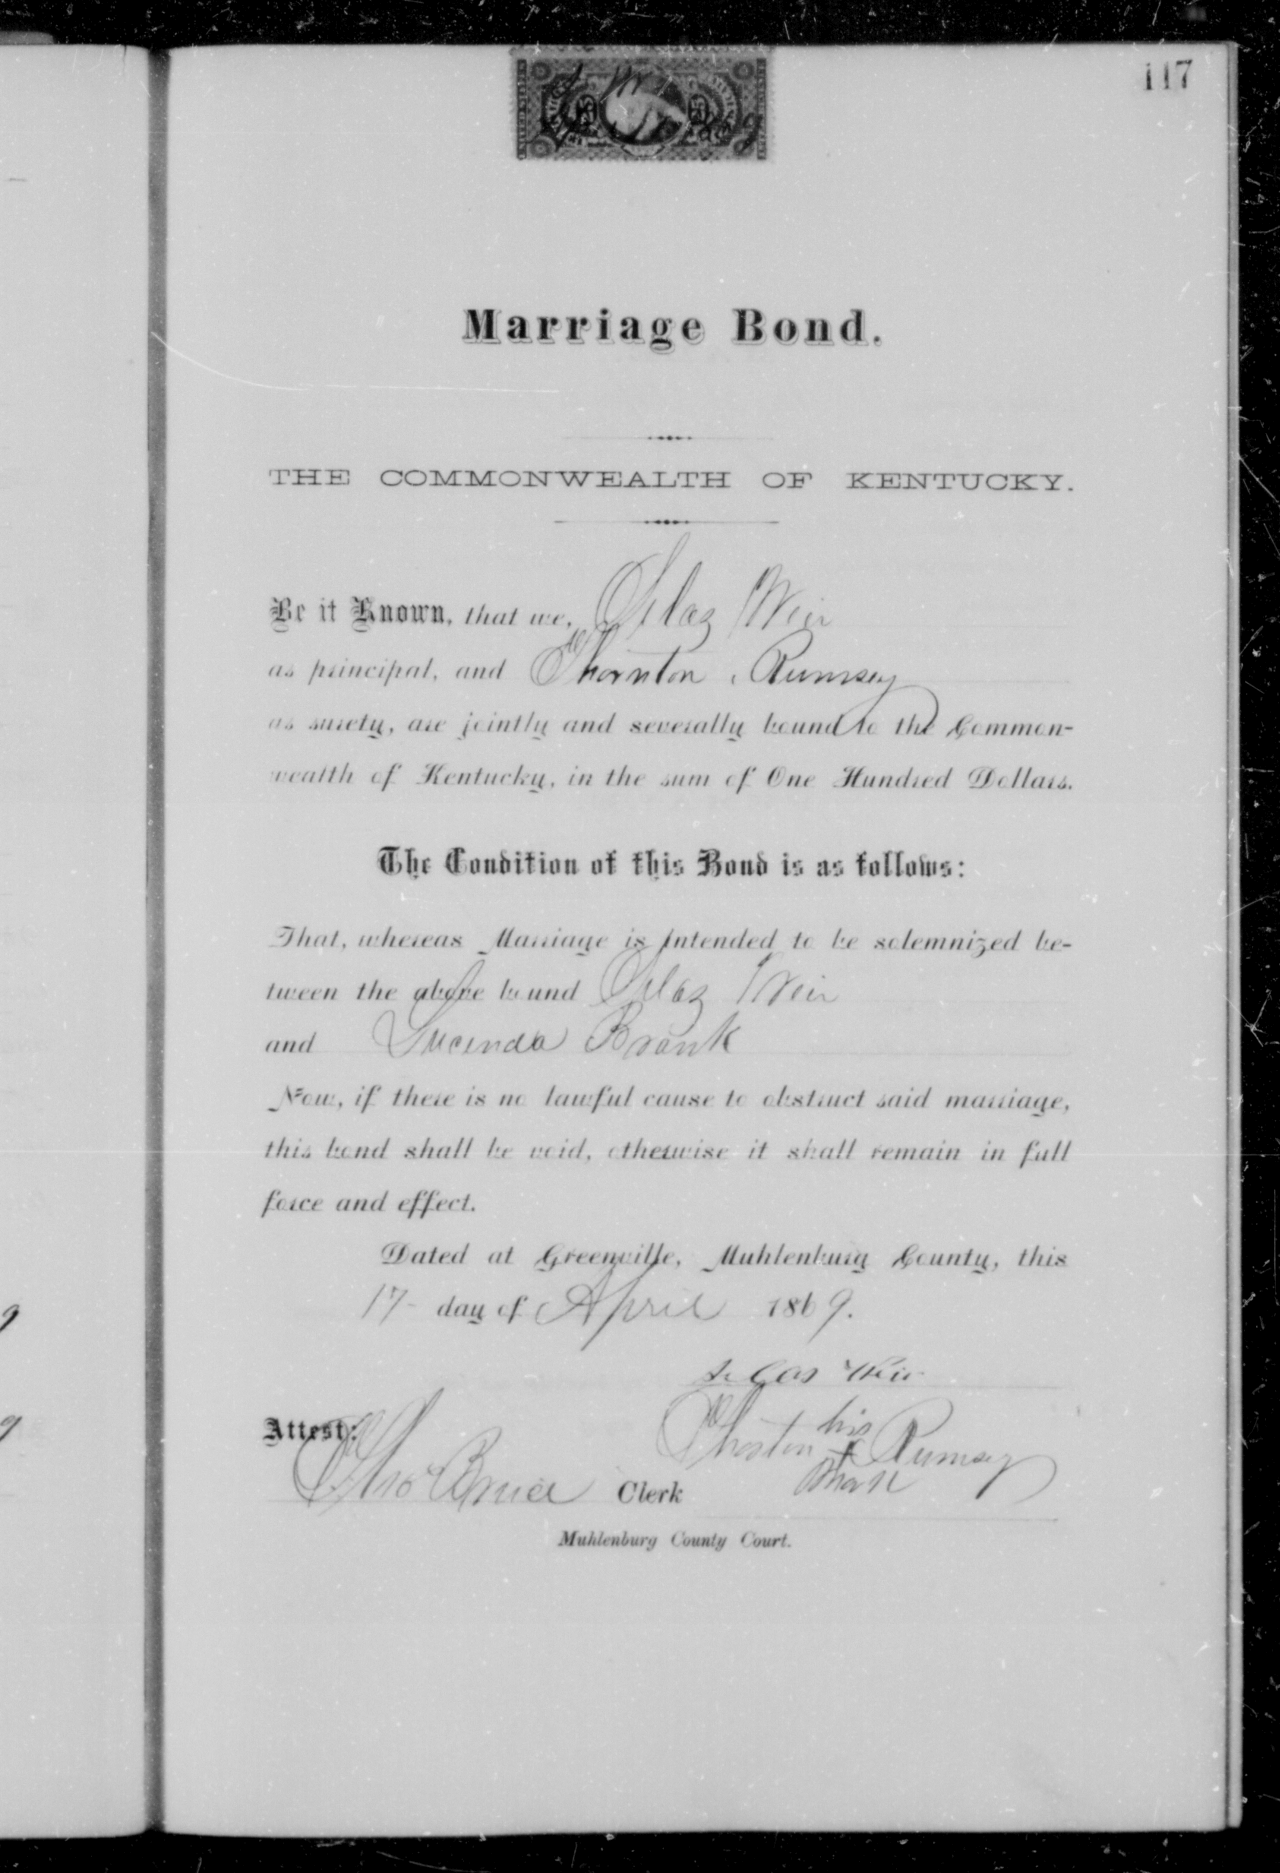 117
Marriage Bond.
THE COMMONWEALTH OF KENTUCKY.
Be it Known, that we, Silaz Weir
as principal, and Thornton Rumsey
as surety, are jointly and severally bound to the Common-
wealth of Kentucky, in the sum of One Hundred Dollars.
The Condition of this Bond is as follows:
That, whereas Marriage is intended to be solemnized be-
tween the above bound Silaz Weir
and Lucinda Brank
Now, if there is no lawful cause to obstruct said marriage,
this bond shall be void, otherwise it shall remain in full
force and effect.
Dated at Greenville, Muhlenburg County, this
17 day of April 1869.
Silas Weir
Attest:
Thornton his x mark Rumsey
Thos Bruce Clerk
Muhlenburg County Court.